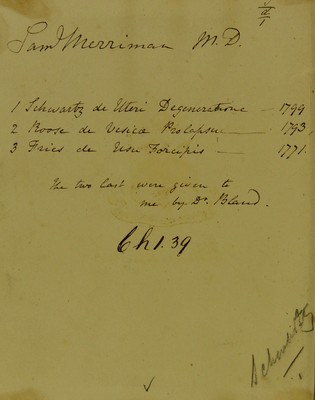 Saml Merriman M.D.
1 Schwartz de Uteri Degeneratione — 1799
2 Roose de Vesicæ Prolapsu — 1793,
3 Fries de Usu Forcipis — 1771.
The two last were given to
me by Dr. Bland.
Ch 1.39